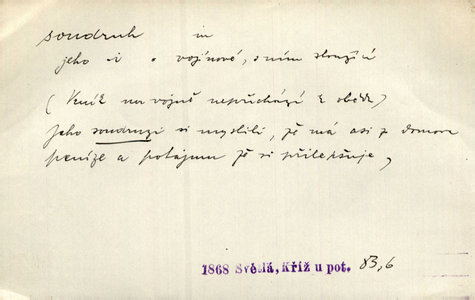 soudruh m
jeho i o vojínové, s ním sloužící
(Kníž na vojně nepřichází k obědu)
Jeho soudruzi si myslili, že má asi z domova
peníze a potajmu že si přilepšuje,
1868 Světlá, Kříž u pot. 83,6